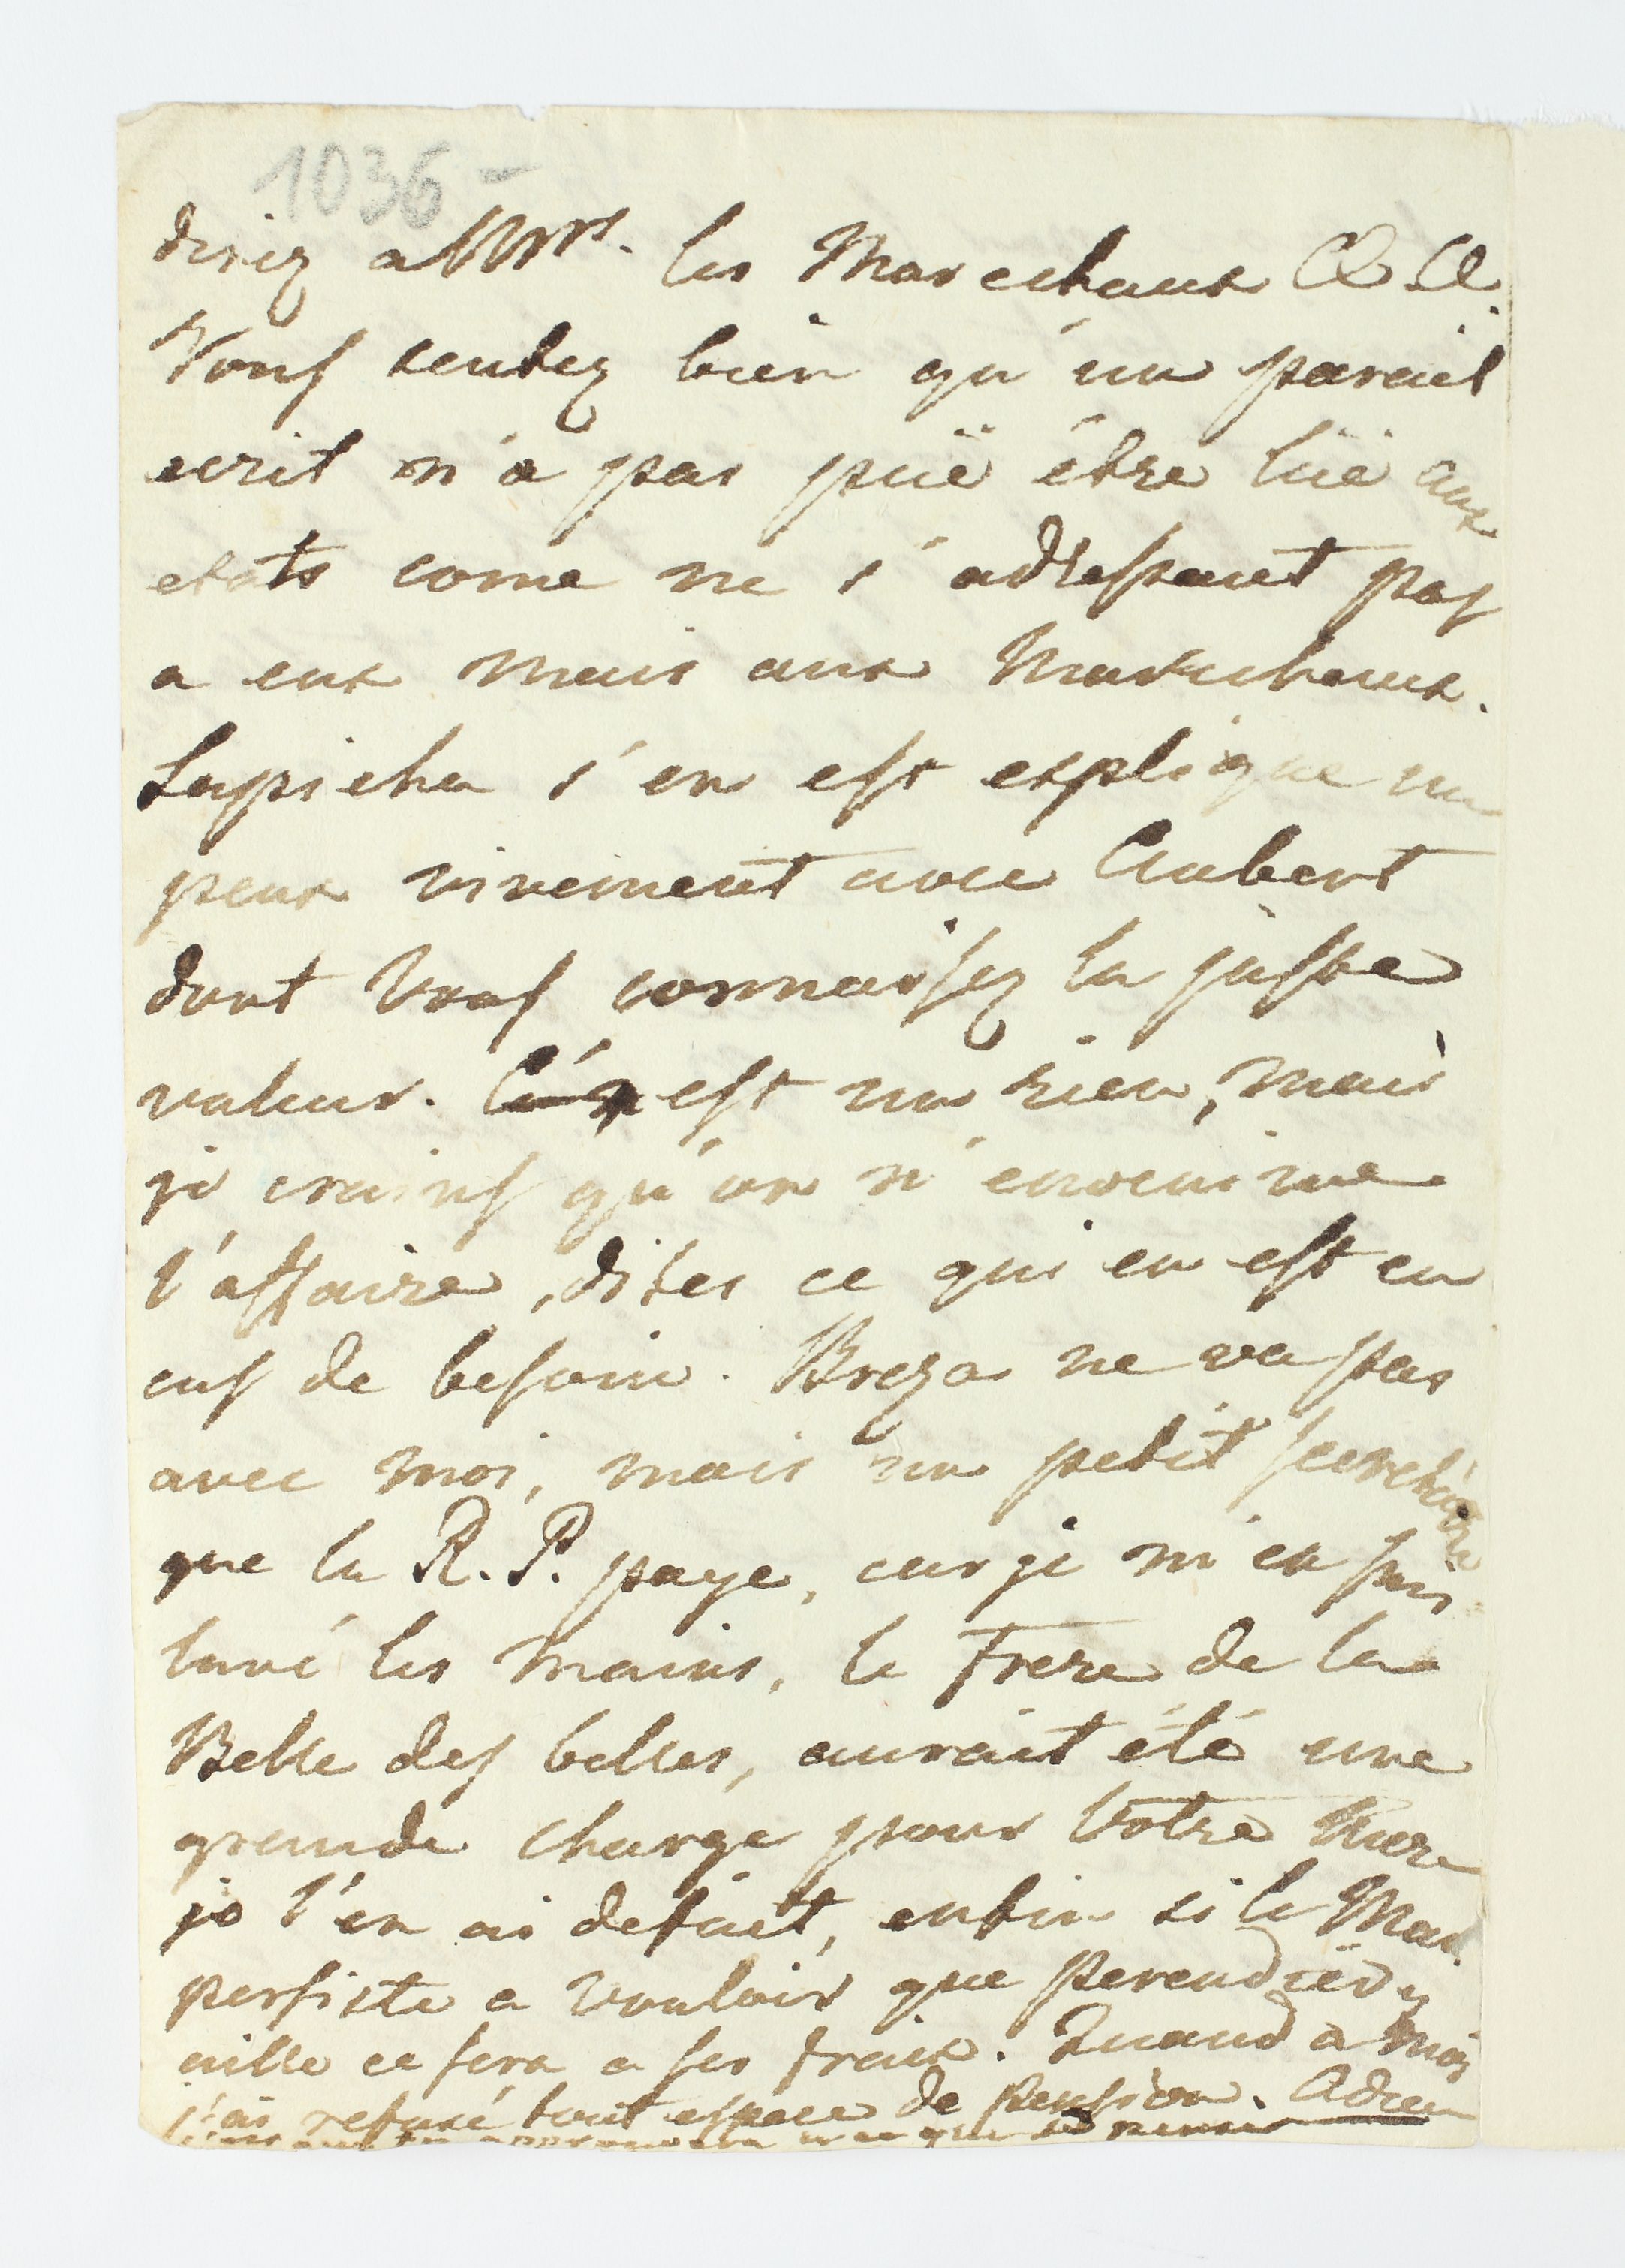 1036 -
diriez a Mrs. les Marechaux Q. Q.
Vous sentez bien qu'un pareil
ecrit n'a pas püe être lüe aux
etats come ne s'adressant pas
a eux mais aux Marechaux.
s'en est explique un
peux vivement avec Aubert
dont Vous connaissez la juste
valeur. est un rien, mais
je crains qu'on n'envenime
l'affaire, dites ce qui en est en
cas de besoin. Breza ne va pas
avec moi, mais un petit
que la R. P. paye, car je m'en suis
lavé les mains, le Frere de la
Belle des belles, aurait été une
grande charge pour Votre Mere
je l'en ai defait, enfin si le Mar.
persiste a vouloir que y
aille ce sera a ses fraix. Quand a moi
j'ai refusé tout espece de pension. Adieu